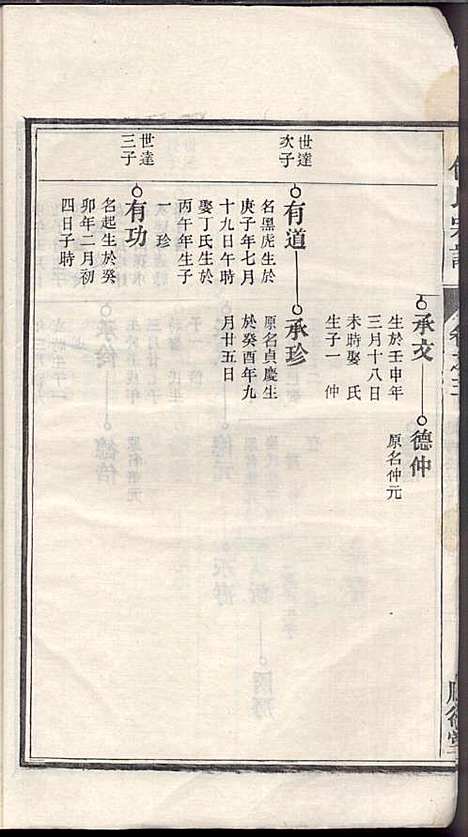 承文
生於壬申年
三月十八日
未時娶 氏
生子一 仲
德仲
原名仲元
世達
次子
有道
名黑虎生於
庚子年七月
十九日午時
娶丁氏生於
丙午年生子
一 珍
承珍
原名貞慶生
於癸酉年九
月廿五日
世達
三子
有功
名起生於癸
卯年二月初
四日子時